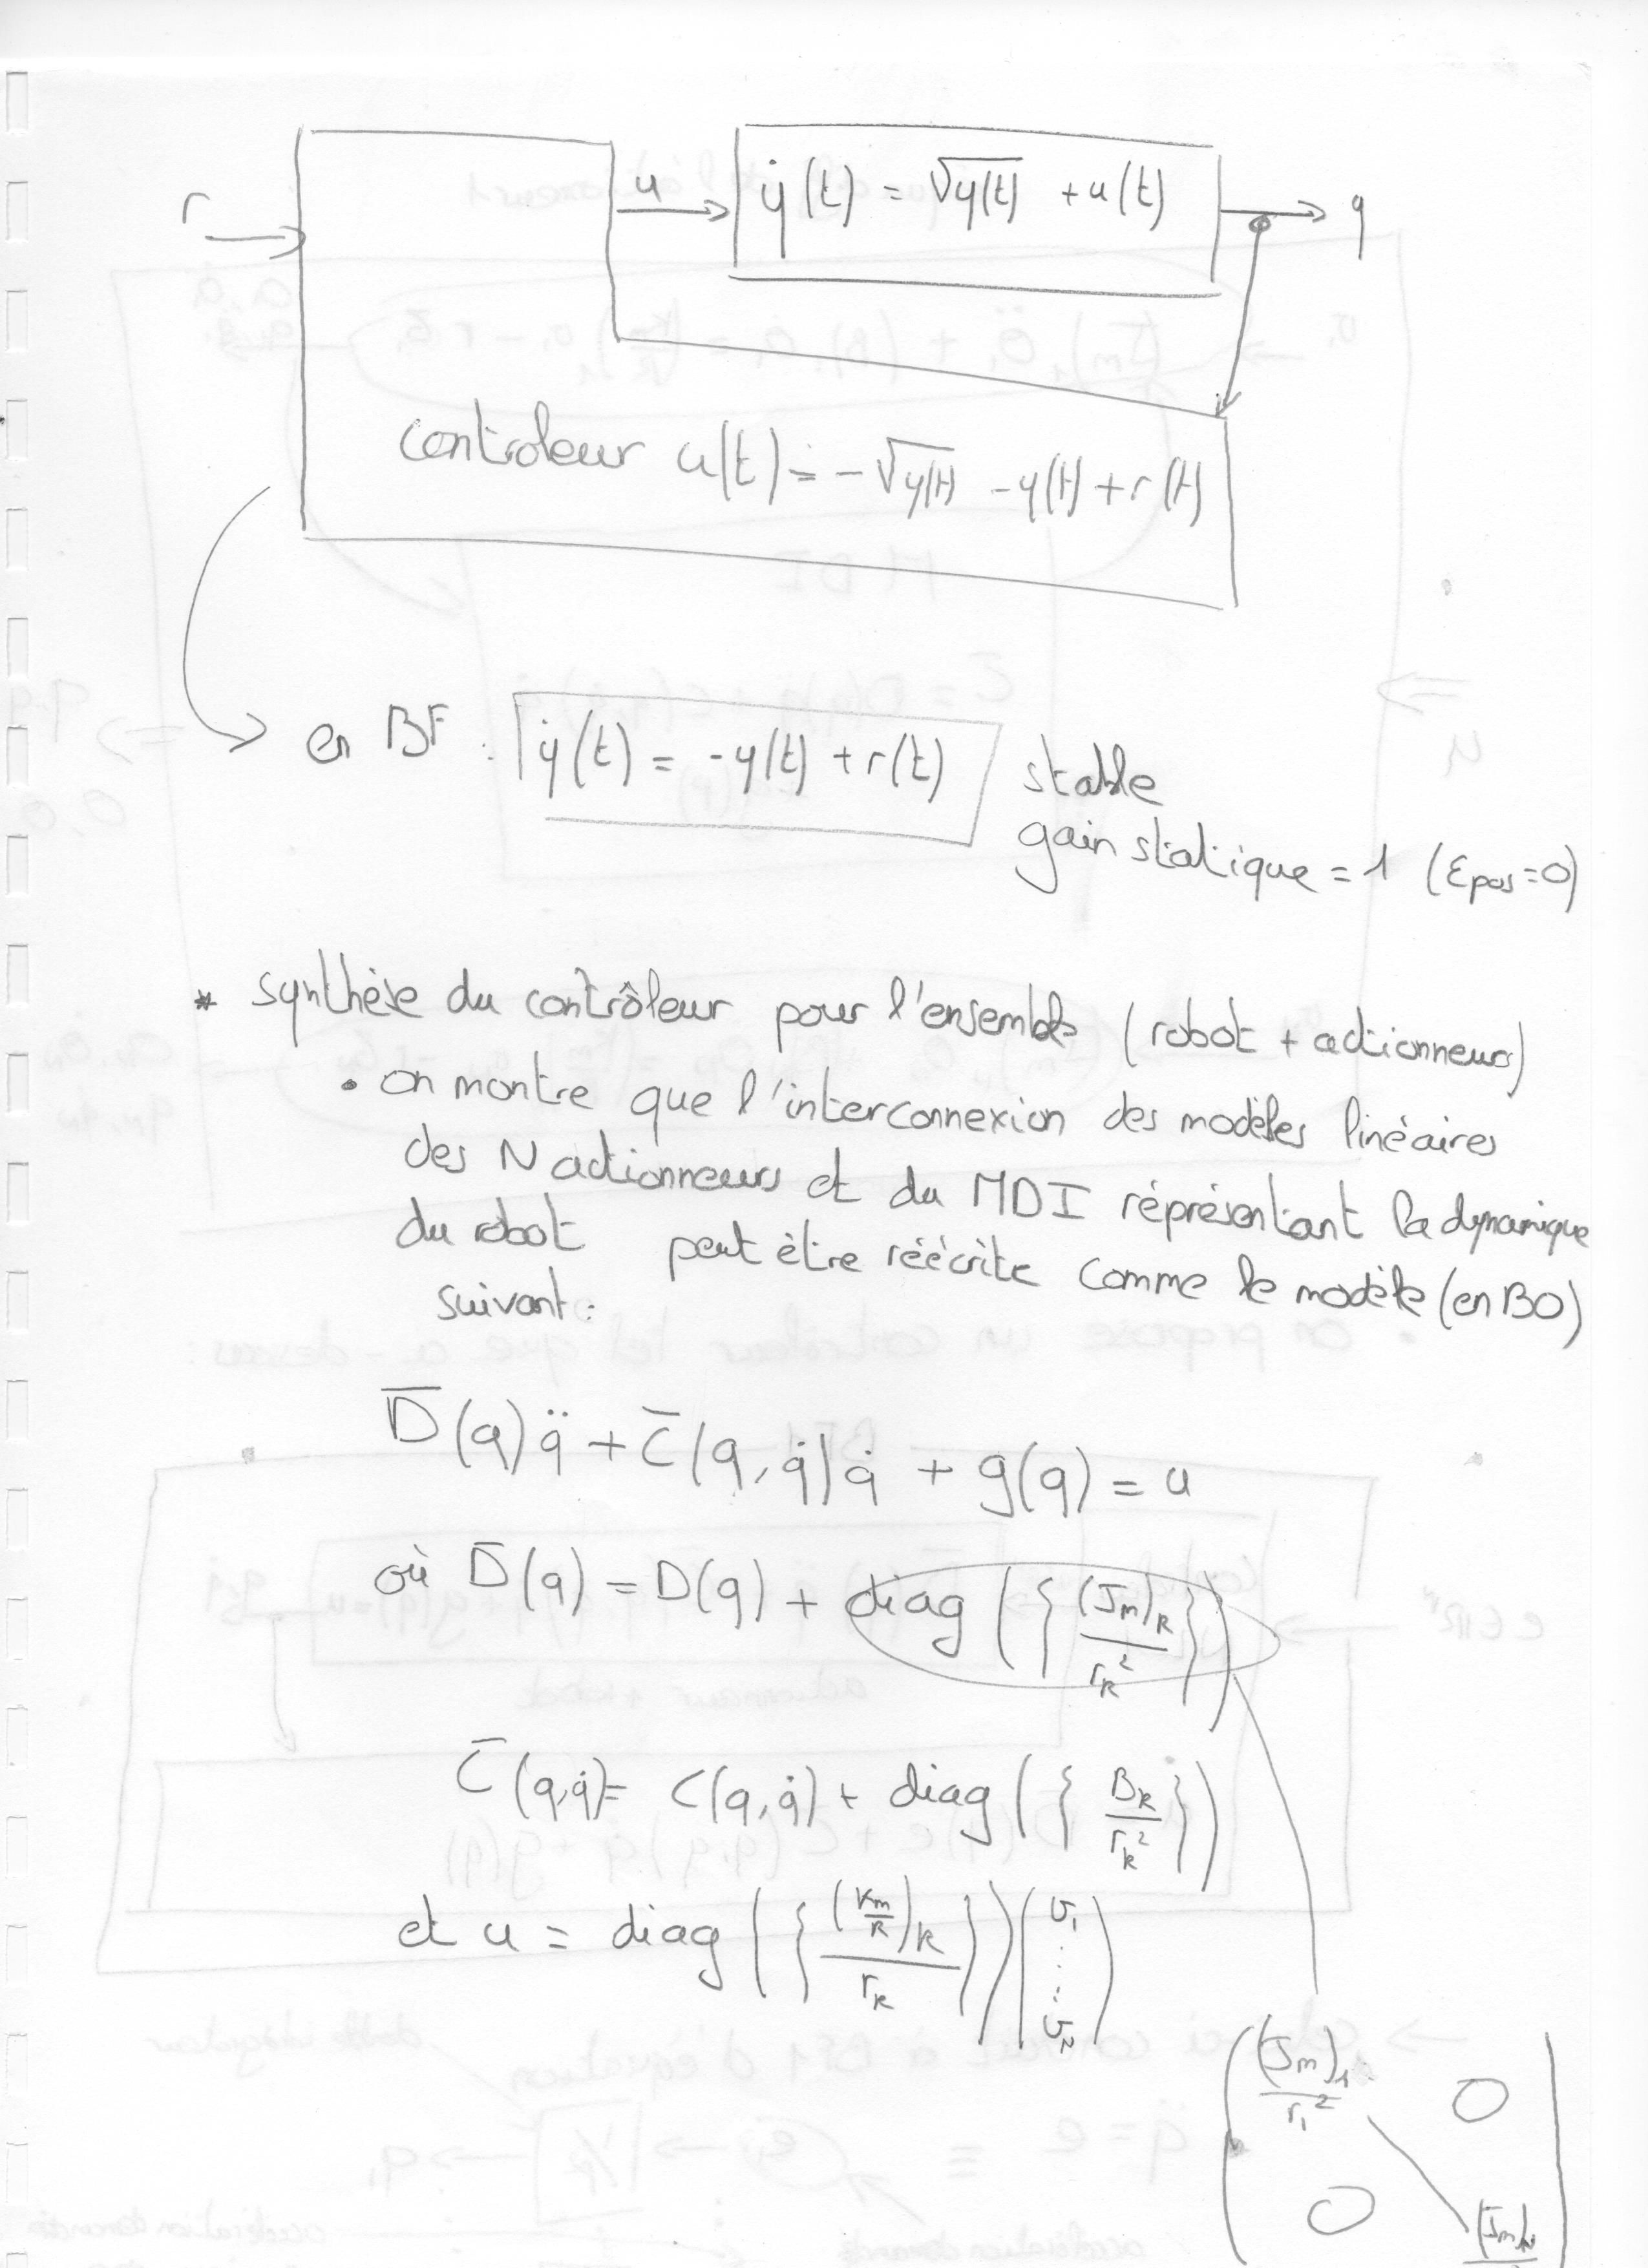 r
u
ẏ(t) = √y(t) + u(t)
y
controleur u(t) = -√y(t) - y(t) + r(t)
en BF : ẏ(t) = -y(t) + r(t)
stable
gain statique = 1 (εpos = 0)
* synthèse du contrôleur pour l'ensemble (robot + actionneurs)
• on montre que l'interconnexion des modèles linéaires
des N actionneurs et du MDI réprésentant la dynamique
du robot peut être réécrite comme le modèle (en BO)
suivant :
D̄(q)q̈ + C̄(q, q̇)q̇ + g(q) = u
où D̄(q) = D(q) + diag({(Jm)k / rk²})
C̄(q,q̇) = C(q,q̇) + diag({Bk / rk²})
et u = diag({(Km/R)k / rk}) (v1 ... vN)
(Jm)1 / r1² 0
0 (Jm)N